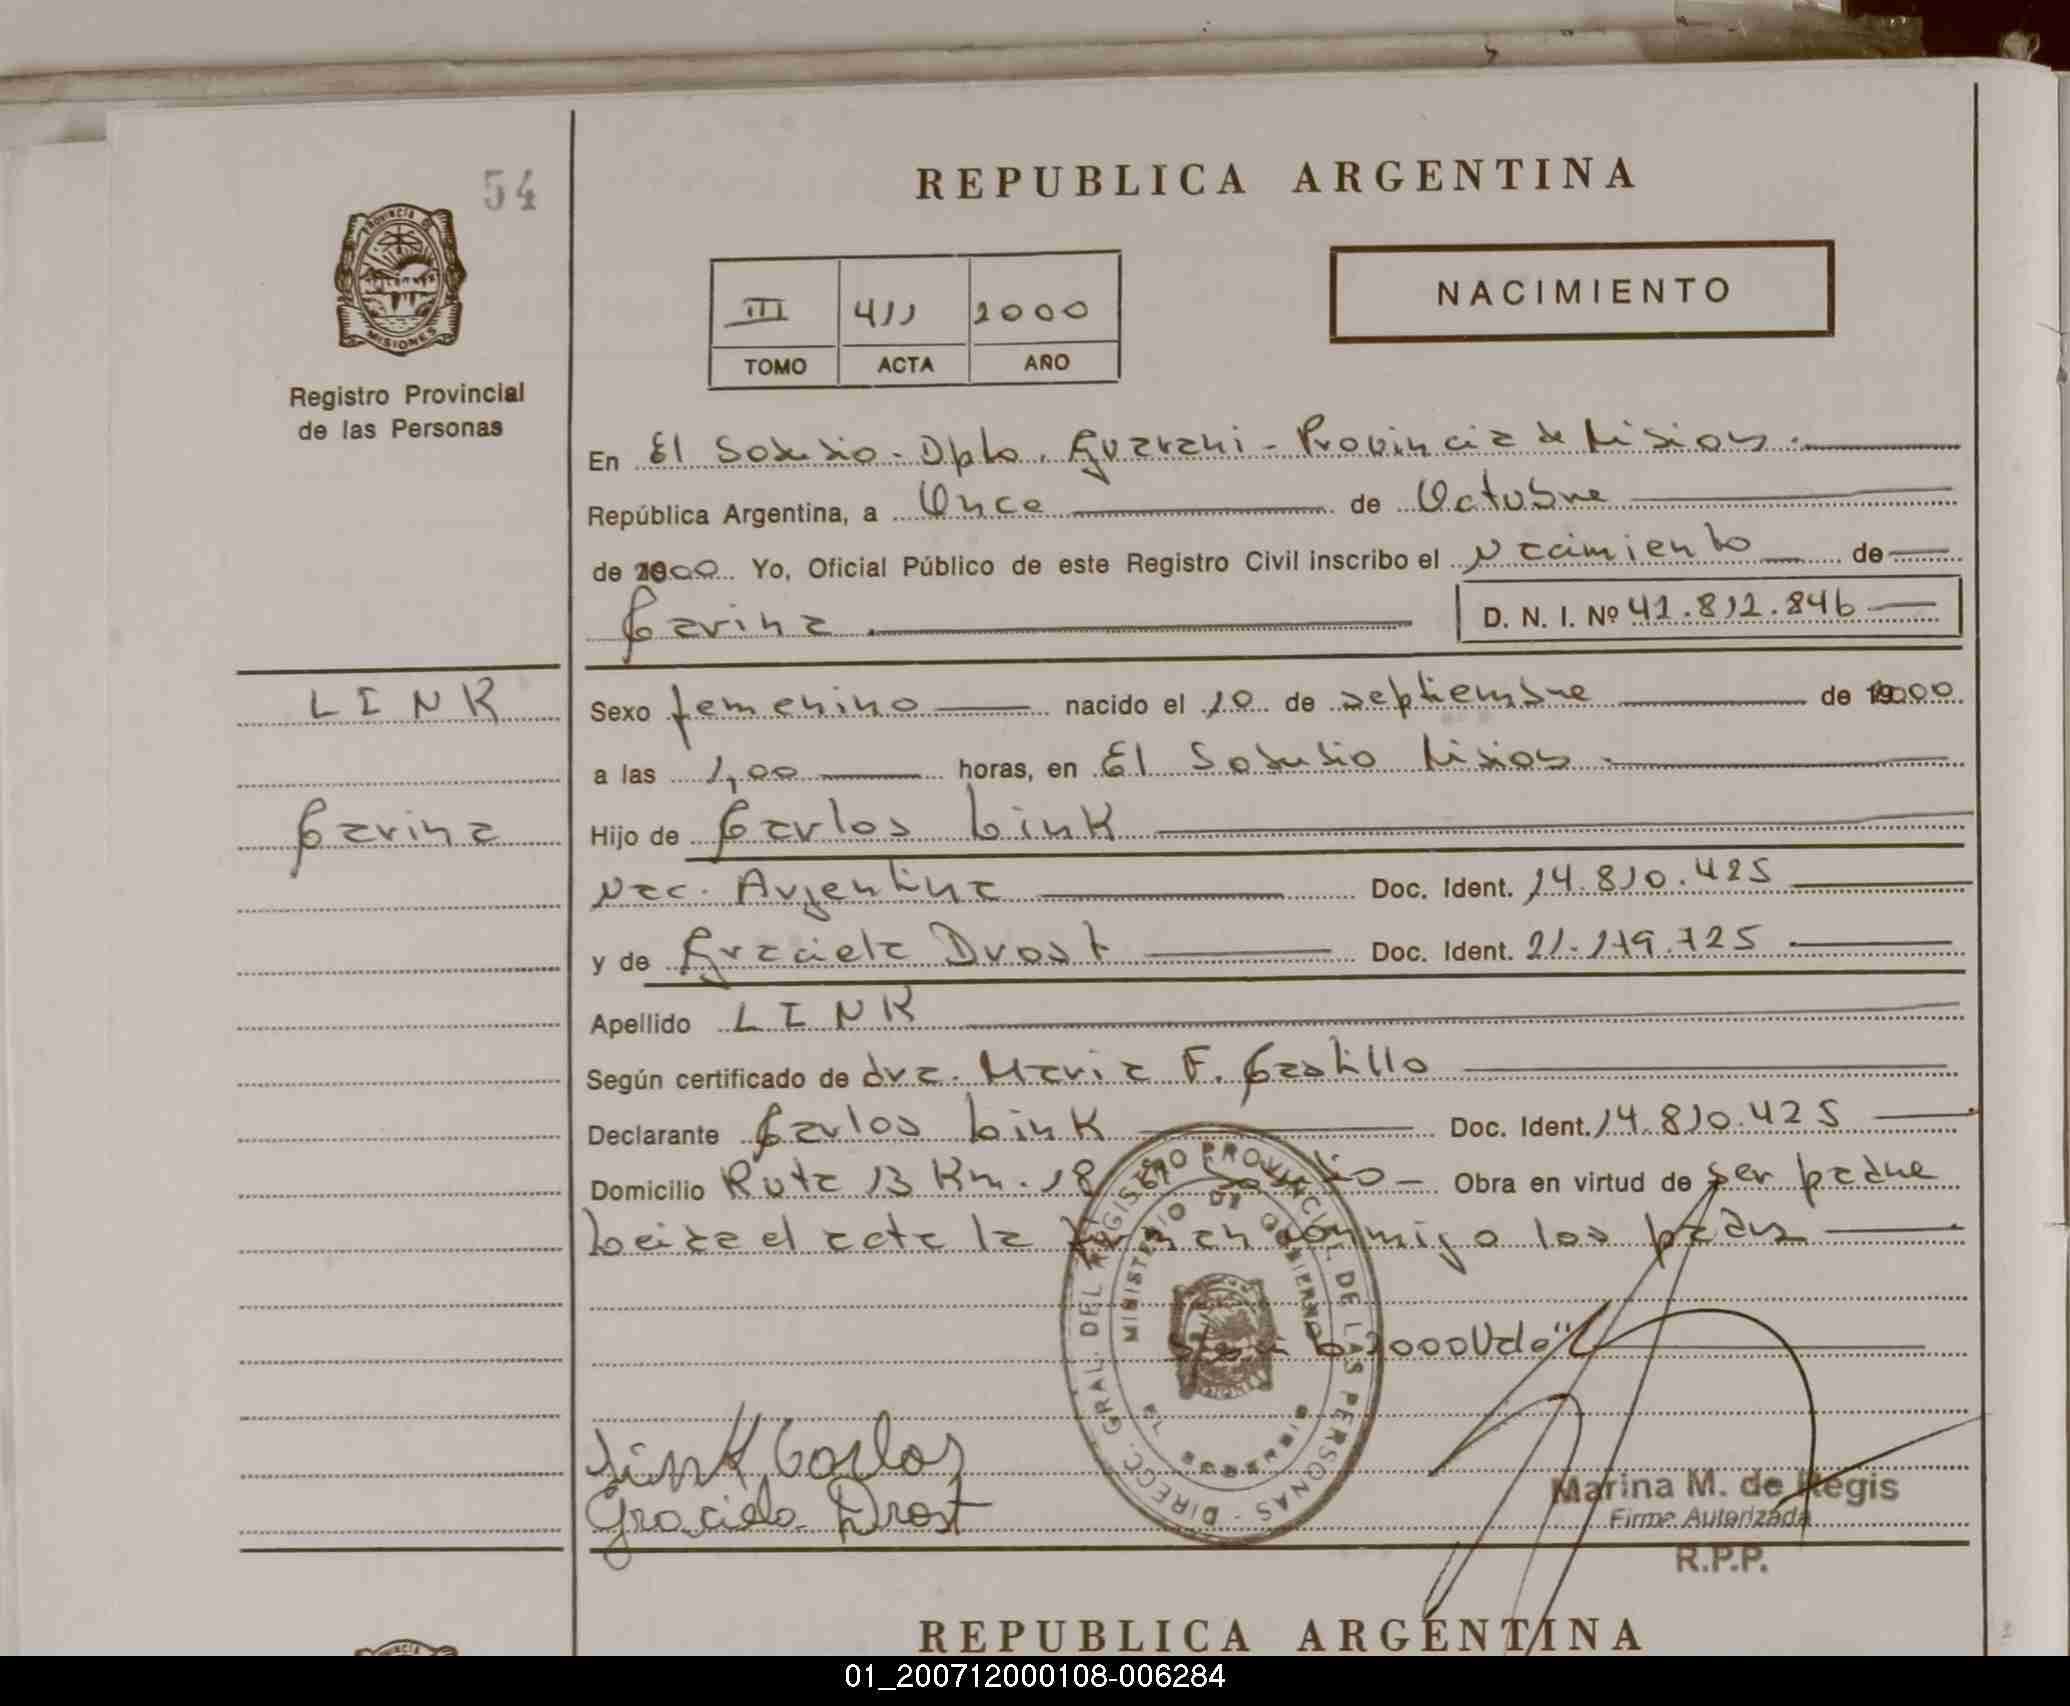 54
REPUBLICA ARGENTINA
PROVINCIA DE
MISIONES
Registro Provincial
de las Personas
III 411 2000
TOMO ACTA AÑO
NACIMIENTO
En El Soberbio - Dpto. Guarani - Provincia de Misiones.
República Argentina, a Once de Octubre
de 2000 Yo, Oficial Público de este Registro Civil inscribo el Nacimiento de
Carina
D. N. I. Nº 42.812.846
LINK
Sexo femenino nacido el 10 de septiembre de 2000
a las 1,00 horas, en El Soberbio Misiones
Carina
Hijo de Carlos Link
Nac. Argentina Doc. Ident. 14.810.425
y de Graciela Drost Doc. Ident. 21.179.725
Apellido LINK
Según certificado de dra. Maria F. Castillo
Declarante Carlos Link Doc. Ident. 14.810.425
Domicilio Ruta 13 Km. 18 El Soberbio - Obra en virtud de ser padre
Leida el acta la firman conmigo los padres
2000 Vale"
DIRECC. GRAL. DEL REGISTRO PROVINCIAL DE LAS PERSONAS -
MINISTERIO DE GOBIERNO
Link Carlos
Graciela Drost
Marina M. de Regis
Firma Autorizada
R.P.P.
REPUBLICA ARGENTINA
01_200712000108-006284